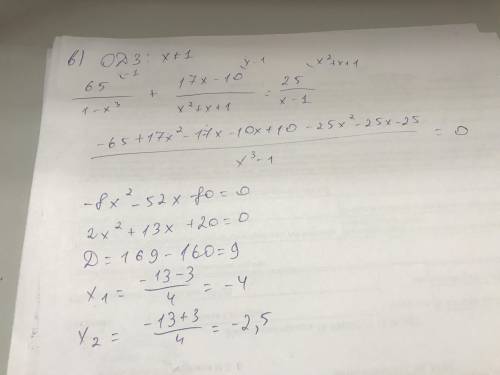 в) ОДЗ: x≠1
65 ⟍-1 / 1-x³ + 17x-10 ⟍x-1 / x²+x+1 = 25 ⟍x²+x+1 / x-1
-65+17x²-17x-10x+10-25x²-25x-25 / x³-1 = 0
-8x²-52x-80=0
2x²+13x+20=0
D=169-160=9
x₁ = -13-3 / 4 = -4
x₂ = -13+3 / 4 = -2,5